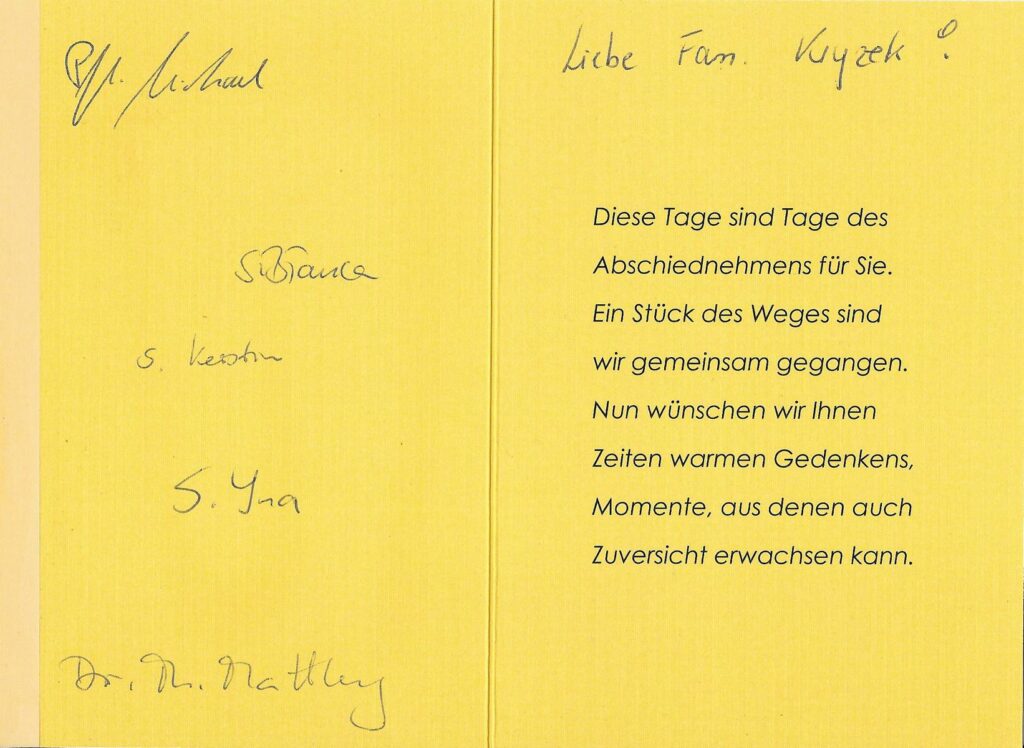 Pfl. Michael
S. Bianca
S. Kerstin
S. Yna
Dr. Th.
Liebe Fam. Kryzek !
Diese Tage sind Tage des
Abschiednehmens für Sie.
Ein Stück des Weges sind
wir gemeinsam gegangen.
Nun wünschen wir Ihnen
Zeiten warmen Gedenkens,
Momente, aus denen auch
Zuversicht erwachsen kann.